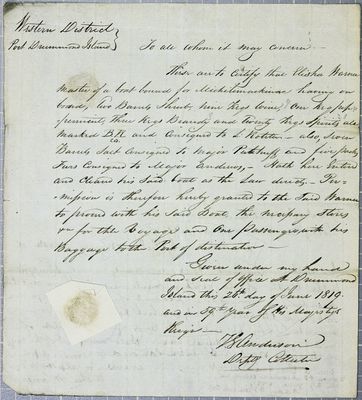 Western District
Port Drummond Island
To all whom it may concern —
These are to Certify that Elisha Warner
Master of a boat bound for Michilimackinac having on
board, two Barrels Shrub, nine Kegs Wine, One Keg pep-
permint, three Kegs Brandy and twenty Kegs Spirits all
marked and Consigned to — also, seven
Barrels Salt Consigned to Major and five packs
Furs Consigned to Major — Hath here Enter'd
and Cleared his Said boat as the Law directs — Per-
mission is therefore hereby granted to the Said Warner
to proceed with his Said Boat, the necessary Stores
for the Voyage and One Passenger with his
Baggage to the Port of destination —
Given under my hand
and seal of Office At Drummond
Island this 26th day of June 1819
and in 59th Year of His Majesty's
Reign —
Anderson
Depy Collector